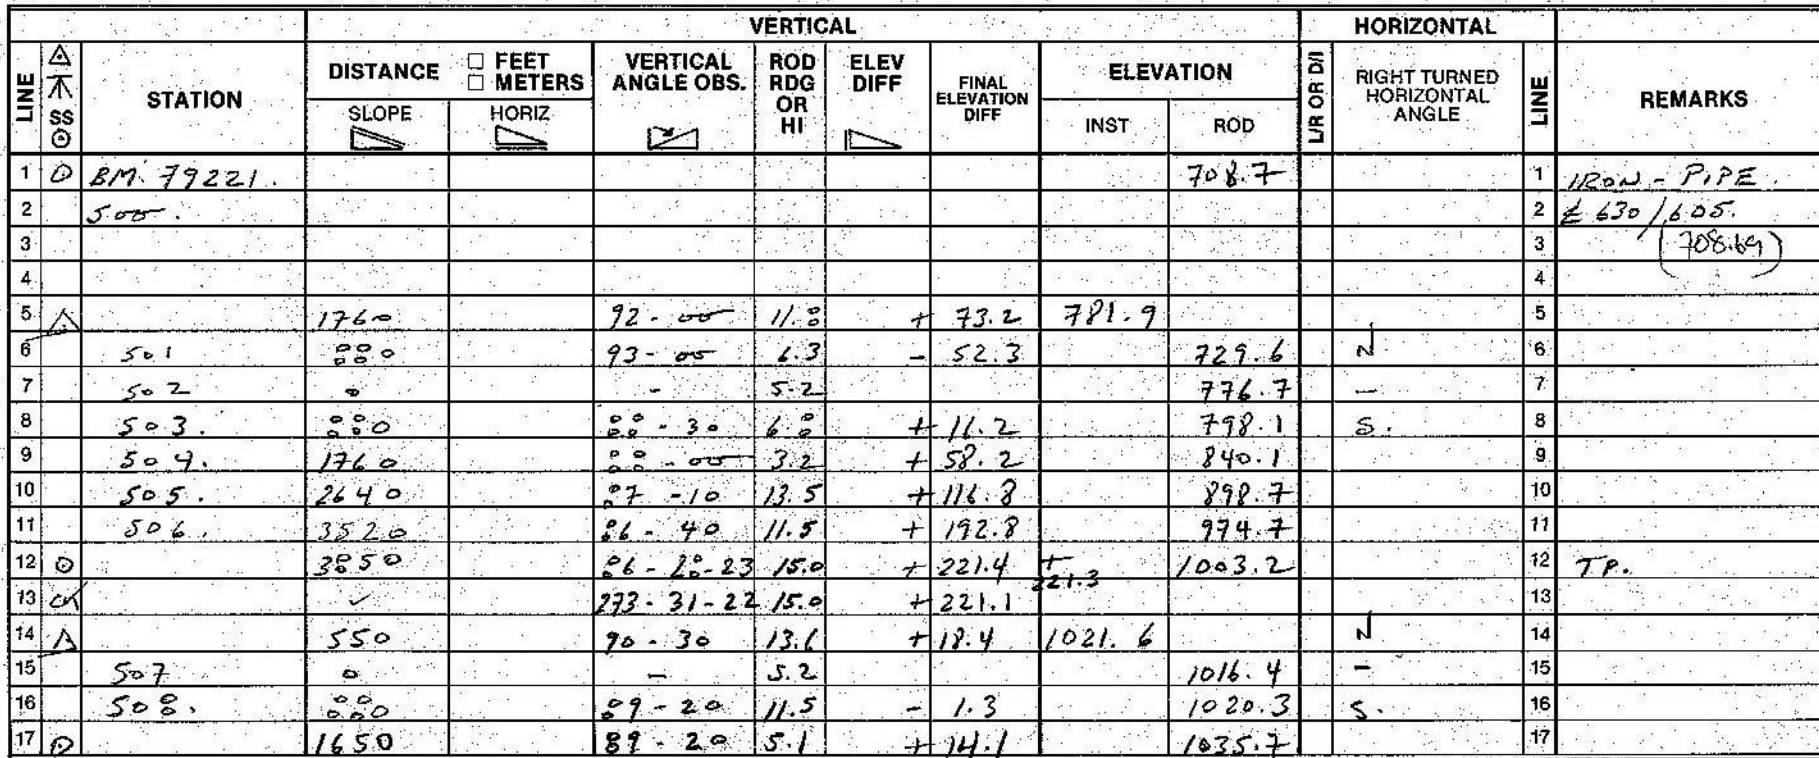 VERTICAL HORIZONTAL
LINE SS STATION DISTANCE □ FEET □ METERS VERTICAL ANGLE OBS. ROD RDG OR HI ELEV DIFF FINAL ELEVATION DIFF ELEVATION L/R OR D/I RIGHT TURNED HORIZONTAL ANGLE LINE REMARKS
SLOPE HORIZ INST ROD
1 BM. 79221. 708.7 1 IRON - PIPE.
2 500. 2 ℄ 630/605.
3 3 (708.69)
4 4
5 1760 92-00 11.8 + 73.2 781.9 5
6 501 880 93-00 6.3 - 52.3 729.6 N 6
7 502 0 - 5.2 776.7 - 7
8 503. 880 88-30 6.8 + 16.2 798.1 S. 8
9 504. 1760 88-00 3.2 + 58.2 840.1 9
10 505. 2640 87-10 13.5 + 116.8 898.7 10
11 506. 3520 86-40 11.5 + 192.8 974.7 11
12 3850 86-28-23 15.0 + 221.4 + 221.3 1003.2 12 TP.
13 OK ✓ 273-31-22 15.0 + 221.1 13
14 550 90-30 13.6 + 18.4 1021.6 N 14
15 507 0 - 5.2 1016.4 - 15
16 508. 880 89-20 11.5 - 1.3 1020.3 S. 16
17 1650 89-20 5.1 + 14.1 1035.7 17